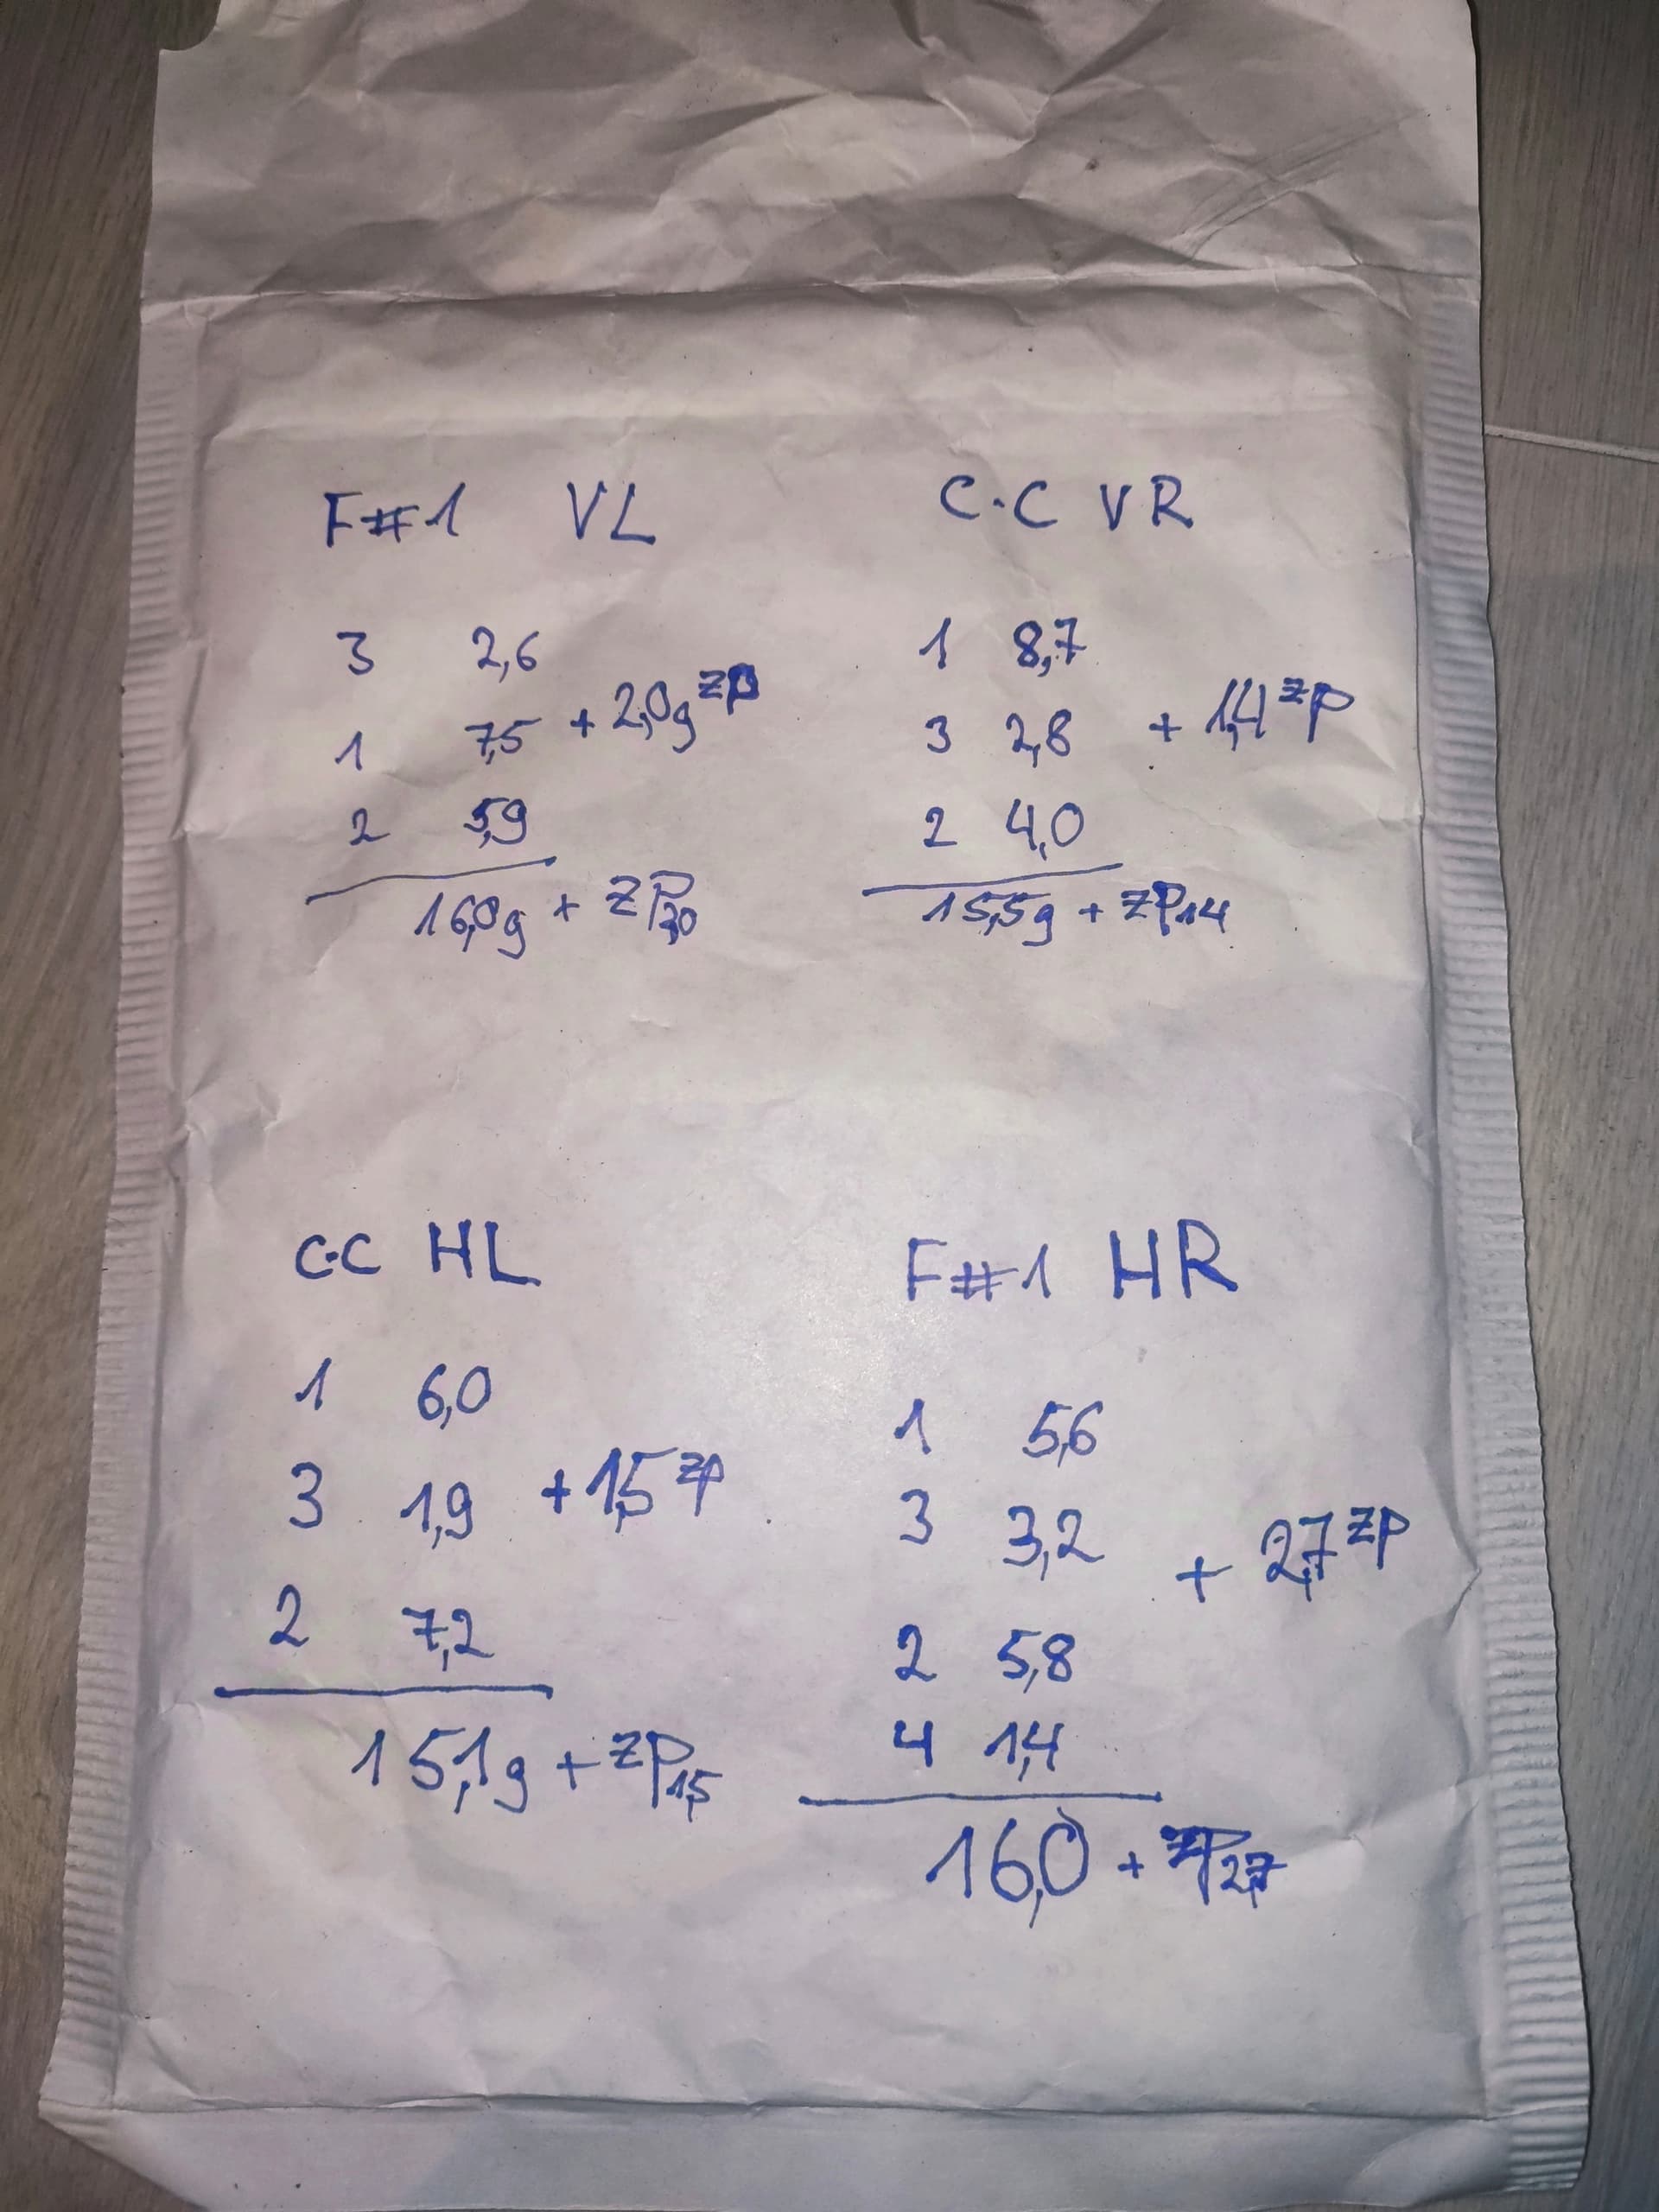 F#1 VL
3 2,6
1 7,5 + 2,0g zp
2 5,9
16,0g + ZP2,0
C·C VR
1 8,7
3 2,8 + 1,4 zp
2 4,0
15,5g + ZP1,4
C·C HL
1 6,0
3 1,9 + 1,5 zp
2 7,2
15,1g + ZP1,5
F#1 HR
1 5,6
3 3,2 + 2,7 ZP
2 5,8
4 1,4
16,0 + ZP2,7